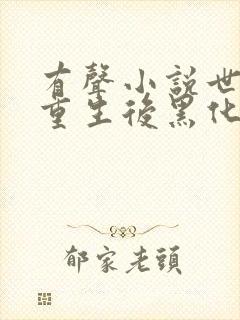 有聲小說世
重生後黑化
郁家老頭